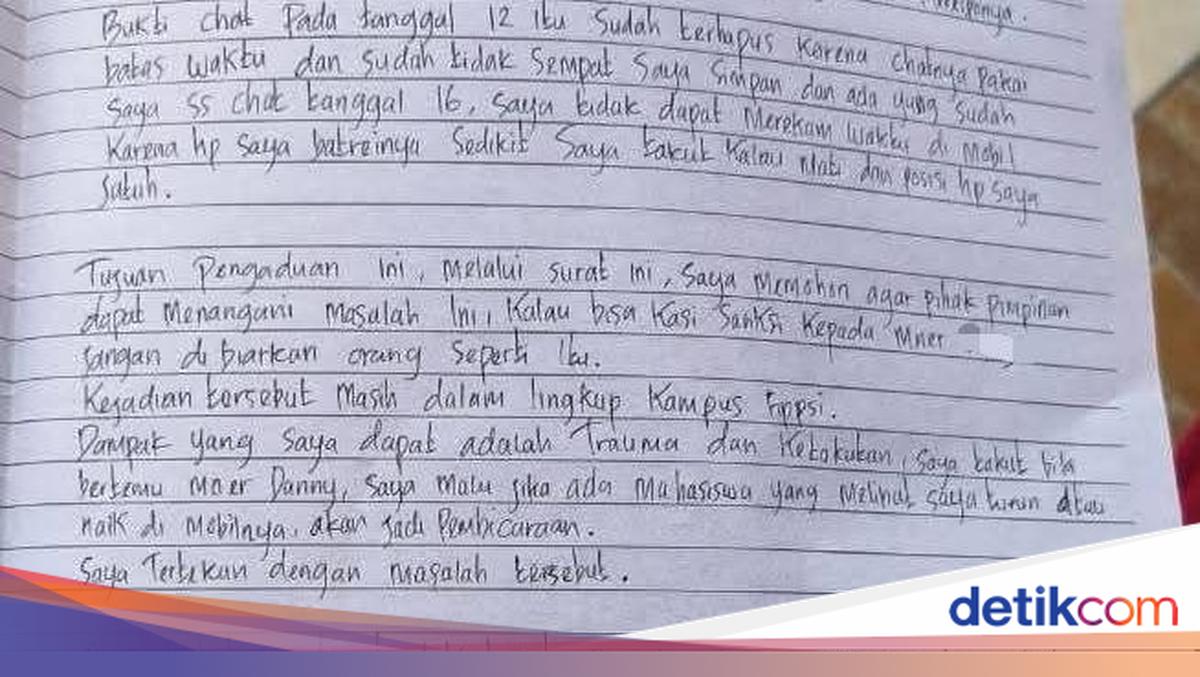 Bukti chat Pada tanggal 12 itu sudah terhapus Karena chatnya Pakai
batas waktu dan sudah tidak sempat saya simpan dan ada yang sudah
saya SS chat tanggal 16, saya tidak dapat Merekam waktu di Mobil
Karena hp saya batreinya sedikit saya takut Kalau Mati dan posisi hp saya
Jatuh.
Tujuan Pengaduan ini, Melalui surat ini, saya Memohon agar pihak pimpinan
dapat Menangani Masalah Ini, Kalau bisa Kasi Sanksi Kepada Mner
Jangan di biarkan orang seperti Itu.
Kejadian tersebut Masih dalam lingkup Kampus Fippsi.
Dampak yang saya dapat adalah Trauma dan Ketakukan, saya takut bila
bertemu Mner Danny, saya Malu jika ada Mahasiswa yang Melihat saya turun atau
naik di Mobilnya, akan jadi Pembicaraan.
Saya Tertekan dengan Masalah tersebut.
detikcom